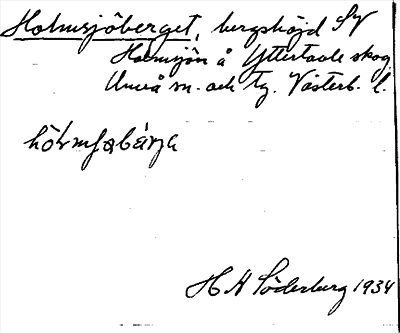 Holmsjöberget, bergshöjd SV
Holmsjön å Yttertavle skog
Umeå sn. och tg. Västerb. l.
H A Söderberg 1934